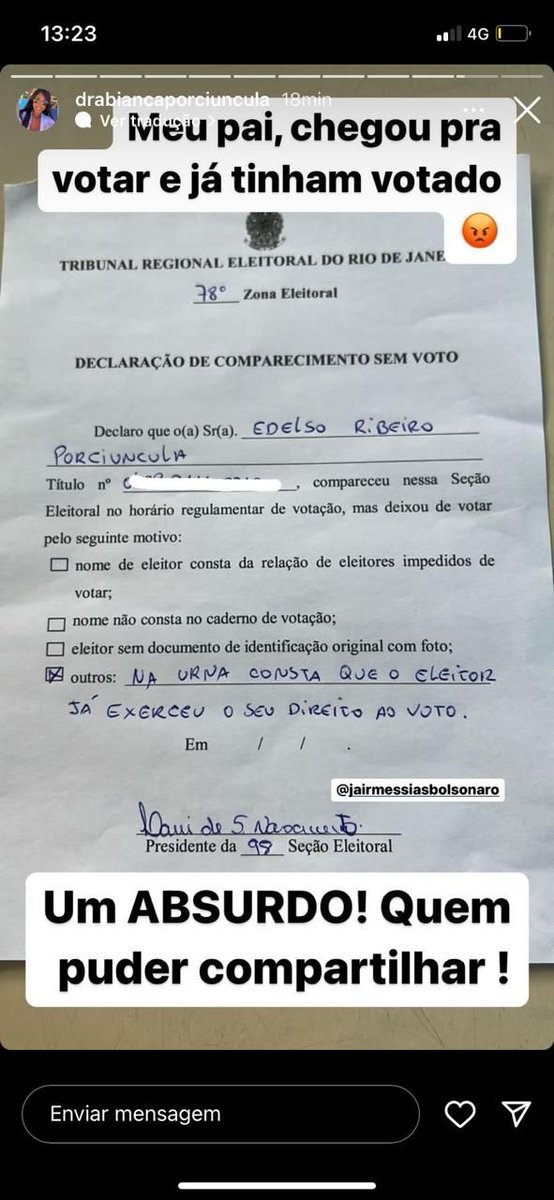 13:23
4G
drabiancaporciuncula 18min
Ver tradução >
Meu pai, chegou pra
votar e já tinham votado
😡
TRIBUNAL REGIONAL ELEITORAL DO RIO DE JANE
78º Zona Eleitoral
DECLARAÇÃO DE COMPARECIMENTO SEM VOTO
Declaro que o(a) Sr(a). EDELSO RIBEIRO
PORCIUNCULA
Título nº , compareceu nessa Seção
Eleitoral no horário regulamentar de votação, mas deixou de votar
pelo seguinte motivo:
nome de eleitor consta da relação de eleitores impedidos de
votar;
nome não consta no caderno de votação;
eleitor sem documento de identificação original com foto;
outros: NA URNA CONSTA QUE O ELEITOR
JÁ EXERCEU O SEU DIREITO AO VOTO.
Em / / .
@jairmessiasbolsonaro
Presidente da 98 Seção Eleitoral
Um ABSURDO! Quem
puder compartilhar !
Enviar mensagem